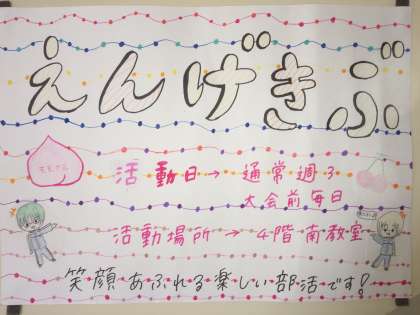 えんげきぶ
活動日→通常週3
大会前毎日
活動場所→4階南教室
笑顔あふれる楽しい部活です!